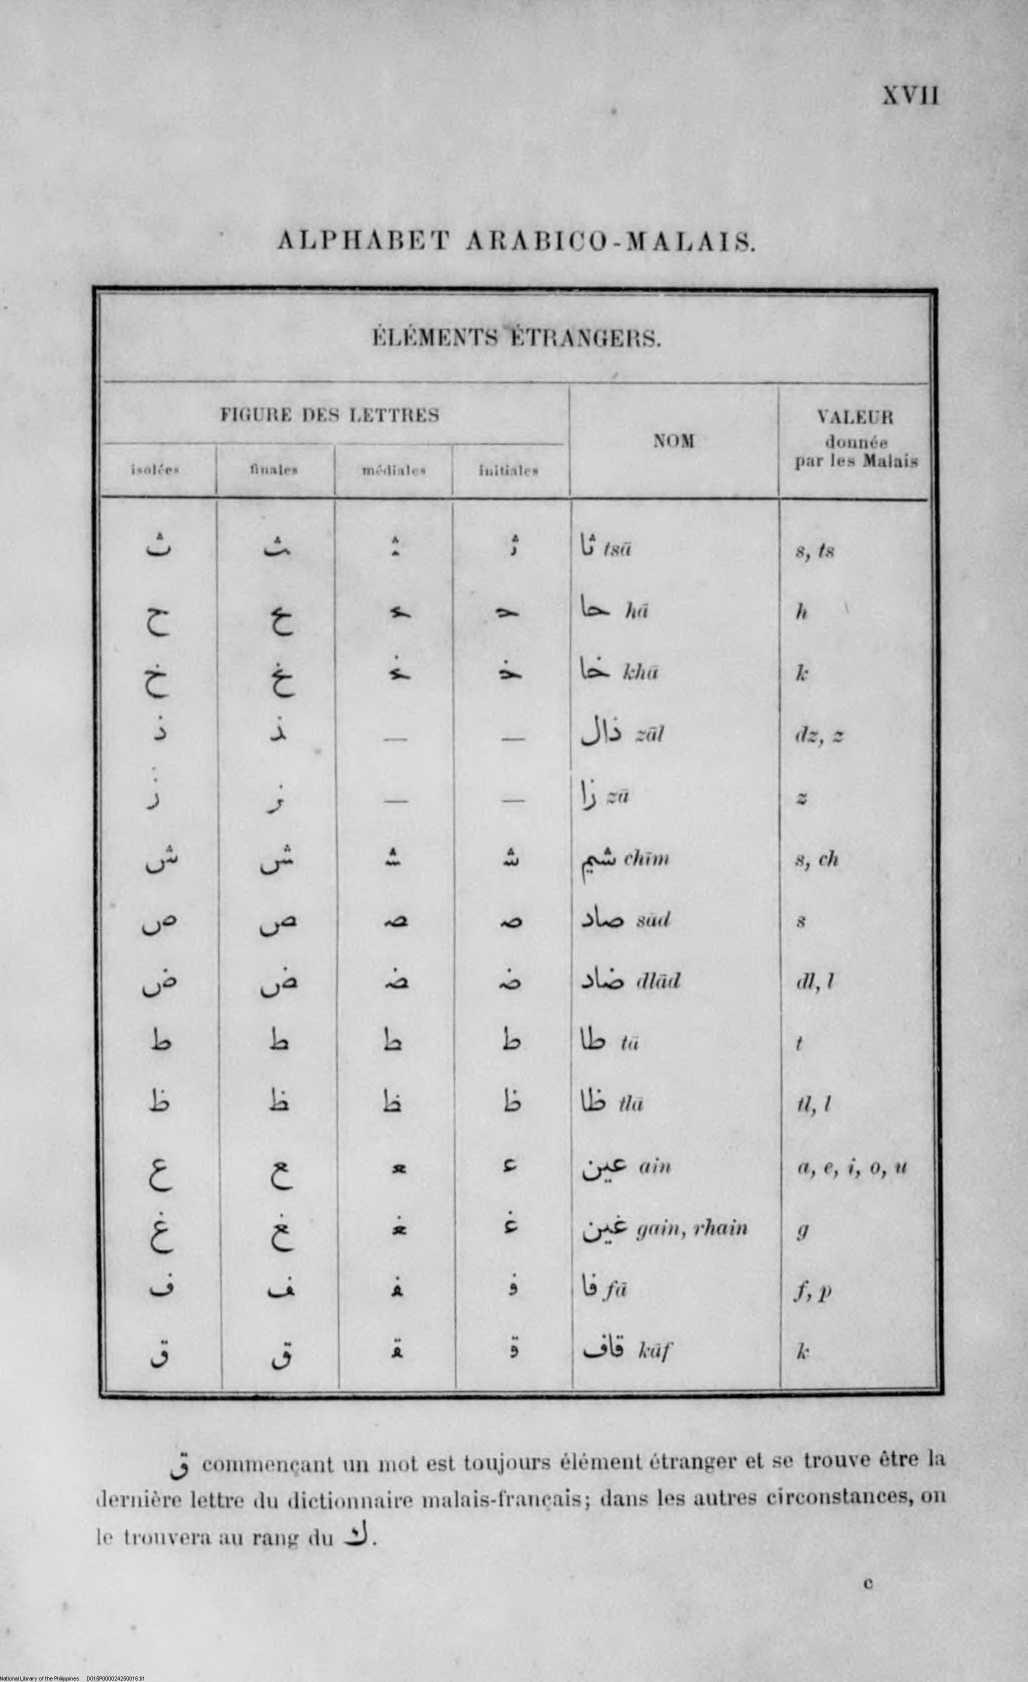 XVII
ALPHABET ARABICO-MALAIS.
ÉLÉMENTS ÉTRANGERS.
FIGURE DES LETTRES NOM VALEUR
donnée
par les Malais
isolées finales médiales initiales
ث ـث ـثـ ثـ ثا tsā s, ts
ح ـح ـحـ حـ حا hā h
خ ـخ ـخـ خـ خا khā k
ذ ـذ — — ذال zāl dz, z
ز ـز — — زا zā z
ش ـش ـشـ شـ شيم chīm s, ch
ص ـص ـصـ صـ صاد sād s
ض ـض ـضـ ضـ ضاد dlād dl, l
ط ـط ـطـ طـ طا tā t
ظ ـظ ـظـ ظـ ظا tlā tl, l
ع ـع ـعـ عـ عين ain a, e, i, o, u
غ ـغ ـغـ غـ غين gain, rhain g
ف ـف ـفـ فـ فا fā f, p
ق ـق ـقـ قـ قاف kāf k
ق commençant un mot est toujours élément étranger et se trouve être la
dernière lettre du dictionnaire malais-français; dans les autres circonstances, on
le trouvera au rang du ك.
c
National Library of the Philippines